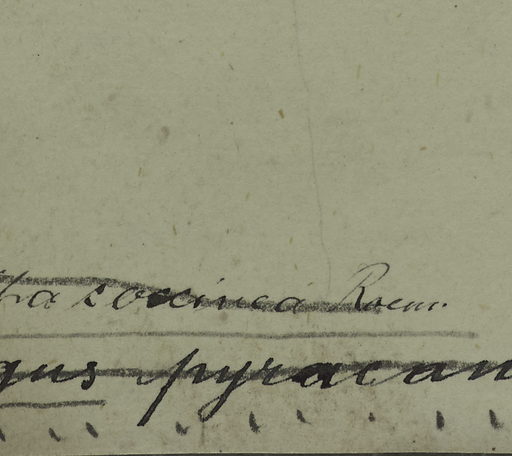 coccinea Roem.
gus pyracan